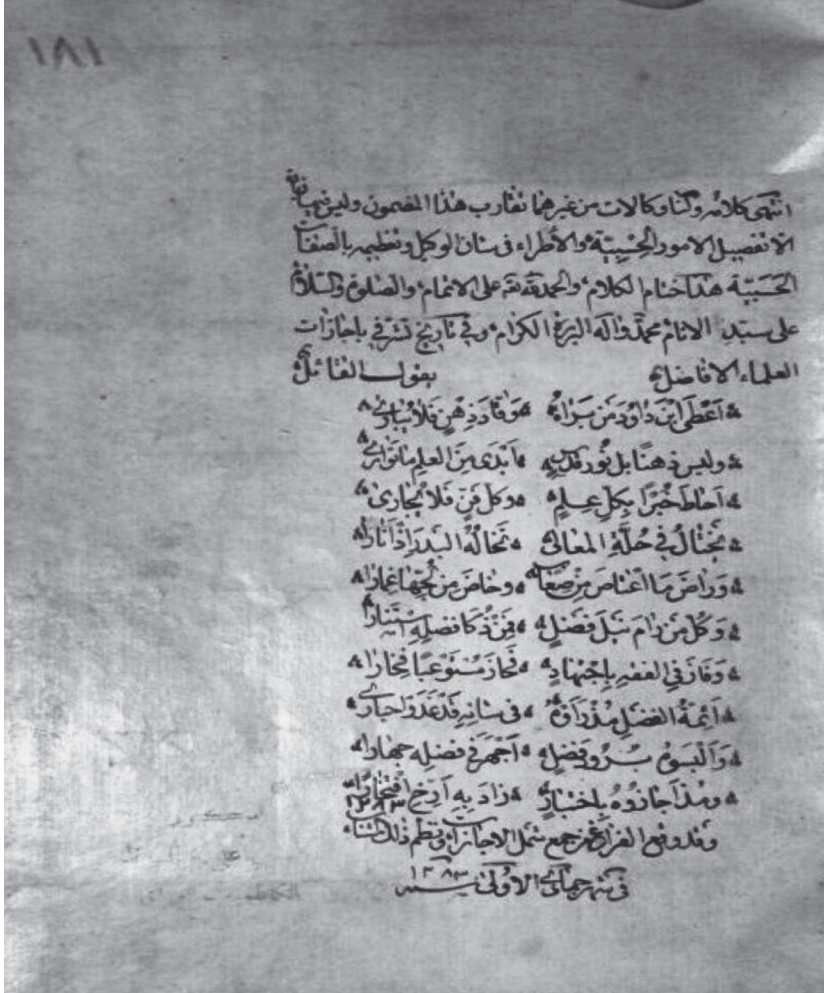 ١٨١
انتهى كلامه ولنا وكالات من غيرهما تقارب هذا المضمون وليس فيها فائدة
الا تفصيل الامور الحسبية والأطراء فى شان الوكيل وتعظيمه بالصفات
الحسبية هذا ختام الكلام والحمد لله على الاتمام والصلوة والسلام
على سيد الانام محمد وآله البررة الكرام وفي تاريخ تشرفي باجازات
العلماء الافاضل يقول القائل
أعطى ابن داود من براه وقاد ذهن فلا يبارى
وليس ذهنًا بل نور قدس أبدى من العلم ما توارى
احاط خبرًا بكل علم وكل فن فلا يجارى
يختال في حلة المعالى تخاله البدر اذ أنارا
وراض ما اعتاص من صعاب وخاض من لجها غمارا
وكل من رام نيل فضل فمن ذكا فضله استنارا
وفاز في الفقه باجتهاد فحاز مستوعبًا فخارا
أئمة الفضل مذ رأوه فى شانه قد غدوا حيارى
واليوم برو فضل أجهر في فضله جهارا
ومذ أجازوه باختبار زاد به أرخ افتخارا
١٢٨٣
وقد وقع الفراغ من جمع شمل الاجازات ونظم ذلك الشتات
في شهر جمادى الاولى سنة ١٢٨٣